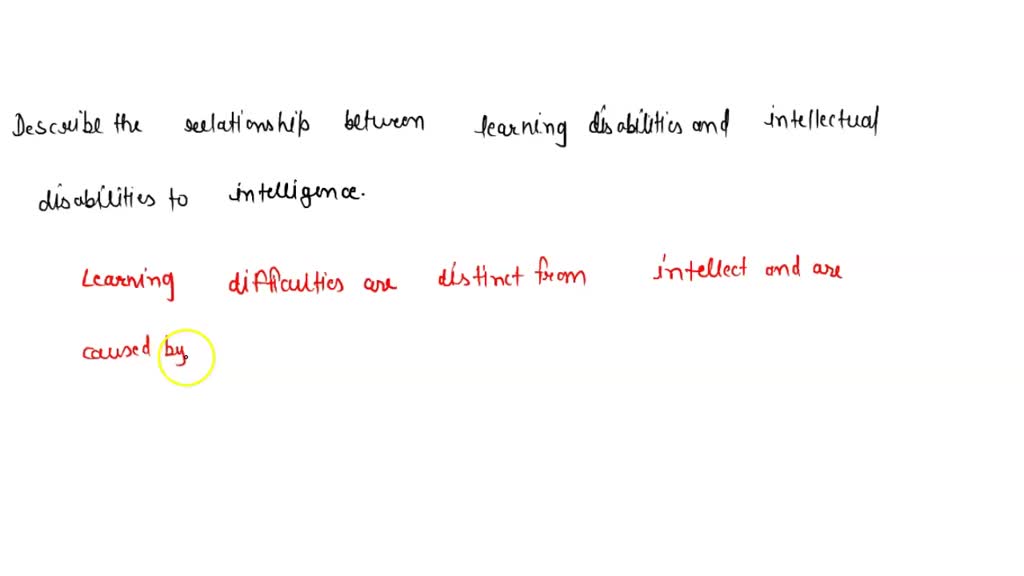 Describe the relationship between learning disabilities and intellectual
disabilities to intelligence.
Learning difficulties are distinct from intellect and are
caused by